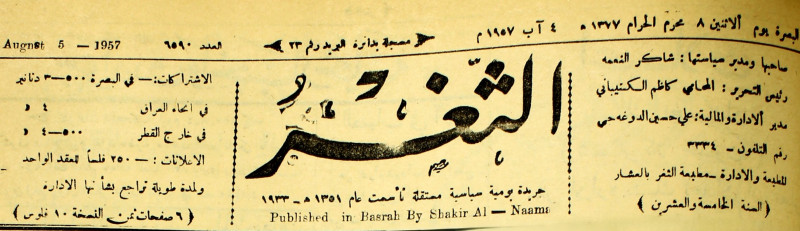 البصرة يوم ألاثنين ٨ محرم الحرام ١٣٧٧ ه ٤ آب ١٩٥٧ م
مسجلة بدائرة البريد رقم ٢٣
العدد ٦٥٩٠
August 5 — 1957
صاحبها ومدير سياستها : شاكر النعمه
رئيس التحرير : المحامي كاظم الكشيباني
مدير ألادارة والمالية : علي حسين الدوغه جي
رقم التلفون - ٣٣٣٤
للطبعة والادارة - مطبعة الثغر بالعشار
( السنة الخامسة والعشرين )
الثغر
جريدة يومية سياسية مستقلة تأسست عام ١٣٥١ ه - ١٩٣٣
Published in Basrah By Shakir Al — Naama
الاشتراكات : — في البصرة ٥٠٠-٣ دنانير
في انحاء العراق ٤ د
في خارج القطر ٥٠٠-٤ د
الاعلانات : — ٢٥٠ فلساً للعقد الواحد
ولمدة طويلة تراجع بشأنها الادارة
( ٦ صفحات ثمن النسخة ١٠ فلوس )